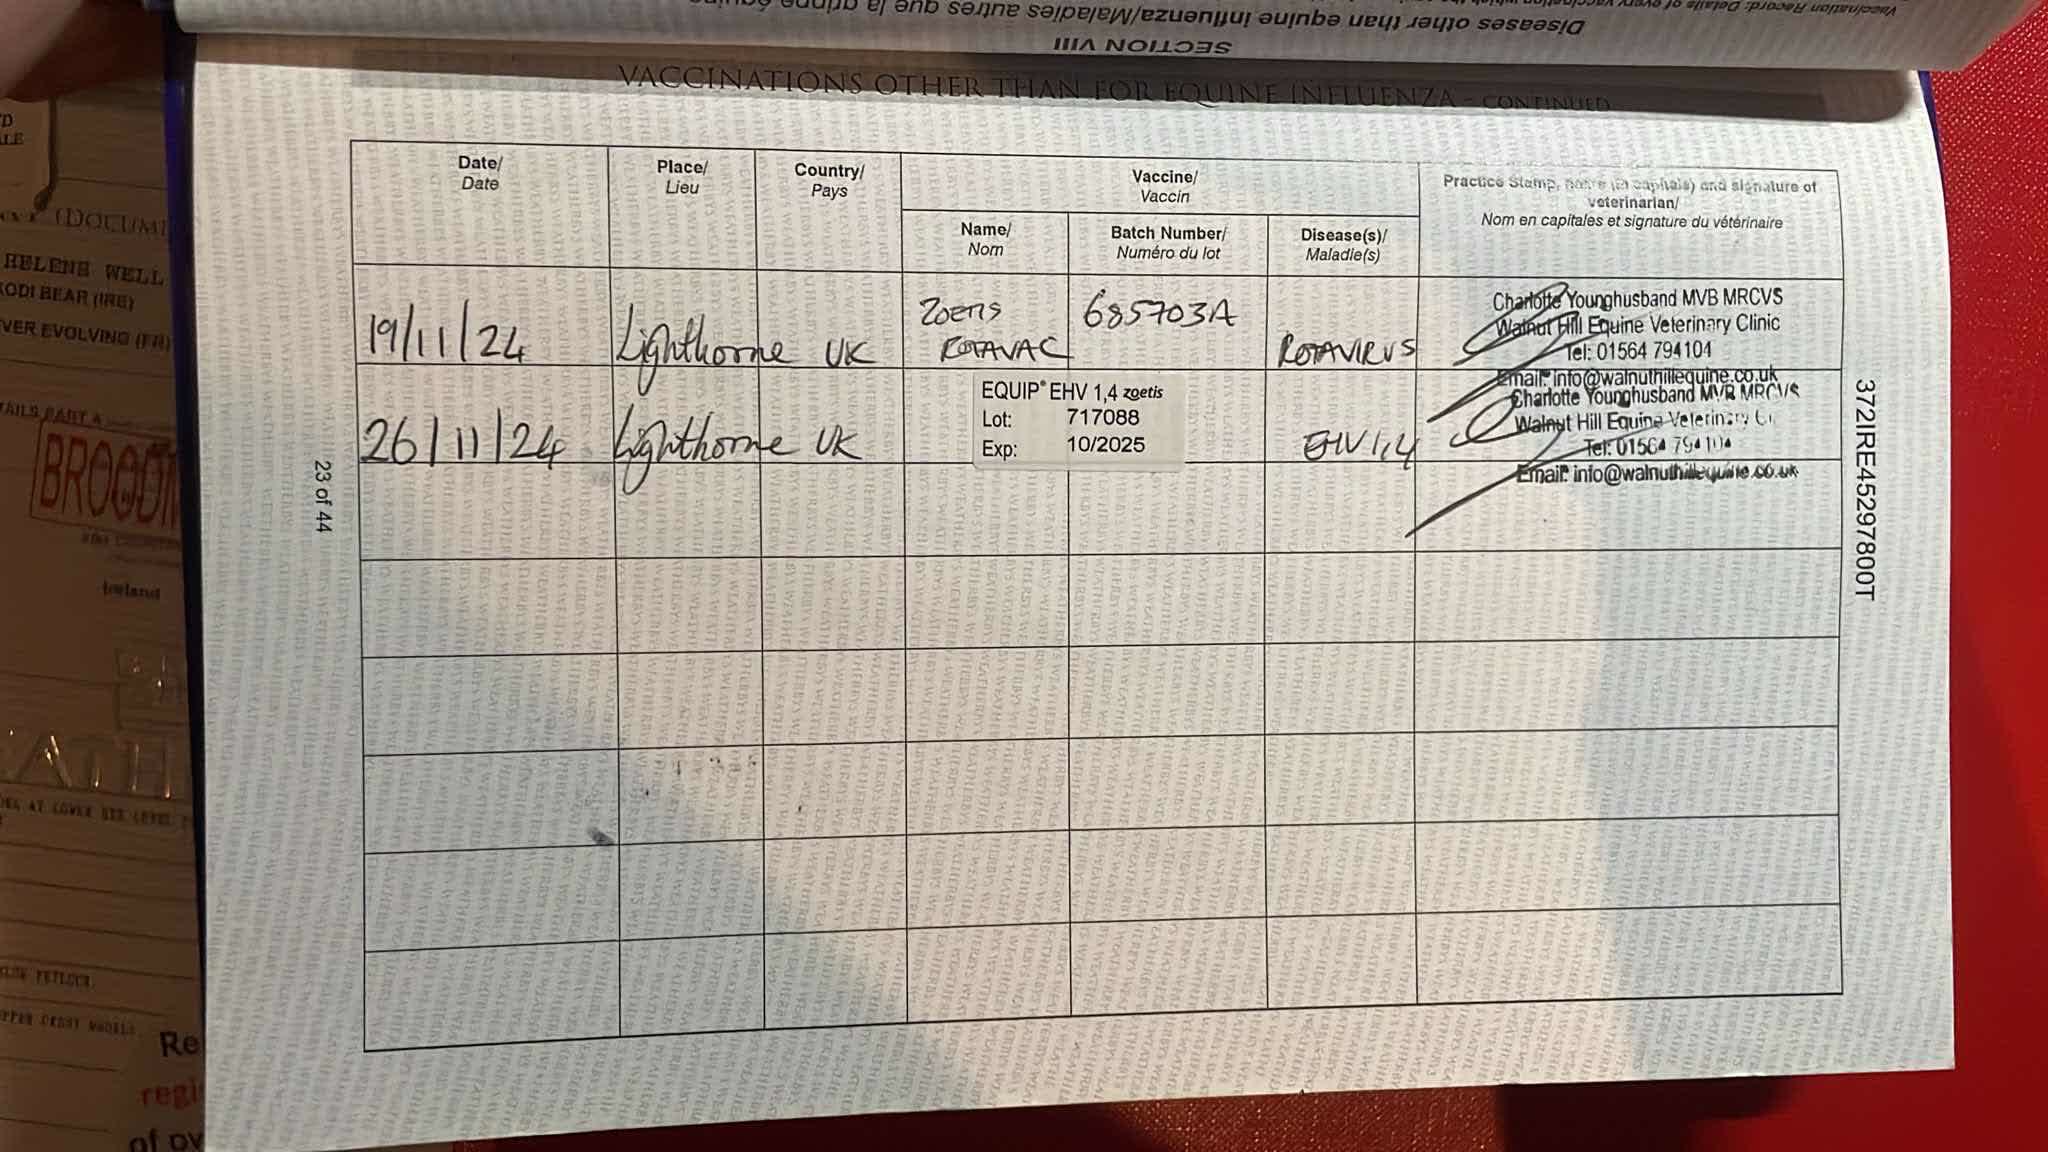 Diseases other than equine influenza/Maladies autres que la grippe équine
SECTION VIII
VACCINATIONS OTHER THAN FOR EQUINE INFLUENZA - CONTINUED
Date/
Date
Place/
Lieu
Country/
Pays
Vaccine/
Vaccin
Name/
Nom
Batch Number/
Numéro du lot
Disease(s)/
Maladie(s)
Practice Stamp, name (in capitals) and signature of
veterinarian/
Nom en capitales et signature du vétérinaire
19/11/24 Lighthorne UK Zoetis ROTAVAC 685703A ROTAVIRUS
Charlotte Younghusband MVB MRCVS
Walnut Hill Equine Veterinary Clinic
Tel: 01564 794104
Email: info@walnuthillequine.co.uk
26/11/24 Lighthorne UK
EQUIP® EHV 1,4 zoetis
Lot: 717088
Exp: 10/2025
EHV 1,4
Charlotte Younghusband MVB MRCVS
Walnut Hill Equine Veterinary
Tel: 01564 794104
Email: info@walnuthillequine.co.uk
23 of 44
372IRE45297800T
(DOCUM
HELENE WELL
KODI BEAR (IRE)
VER EVOLVING (FR)
AILS PART A
BROODM
Ireland
Re
regi
of ow